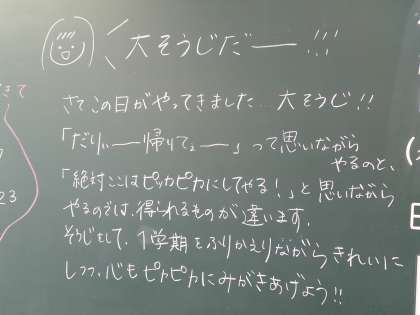 大そうじだー!!!
さてこの日がやってきました…大そうじ!!
「だりぃー帰りてぇー」って思いながら
やるのと、
「絶対ここはピッカピカにしてやる!」と思いながら
やるのでは、得られるものが違います。
そうじをして、1学期をふりかえりながらきれいに
しつつ、心もピカピカにみがきあげよう!!
きて
23